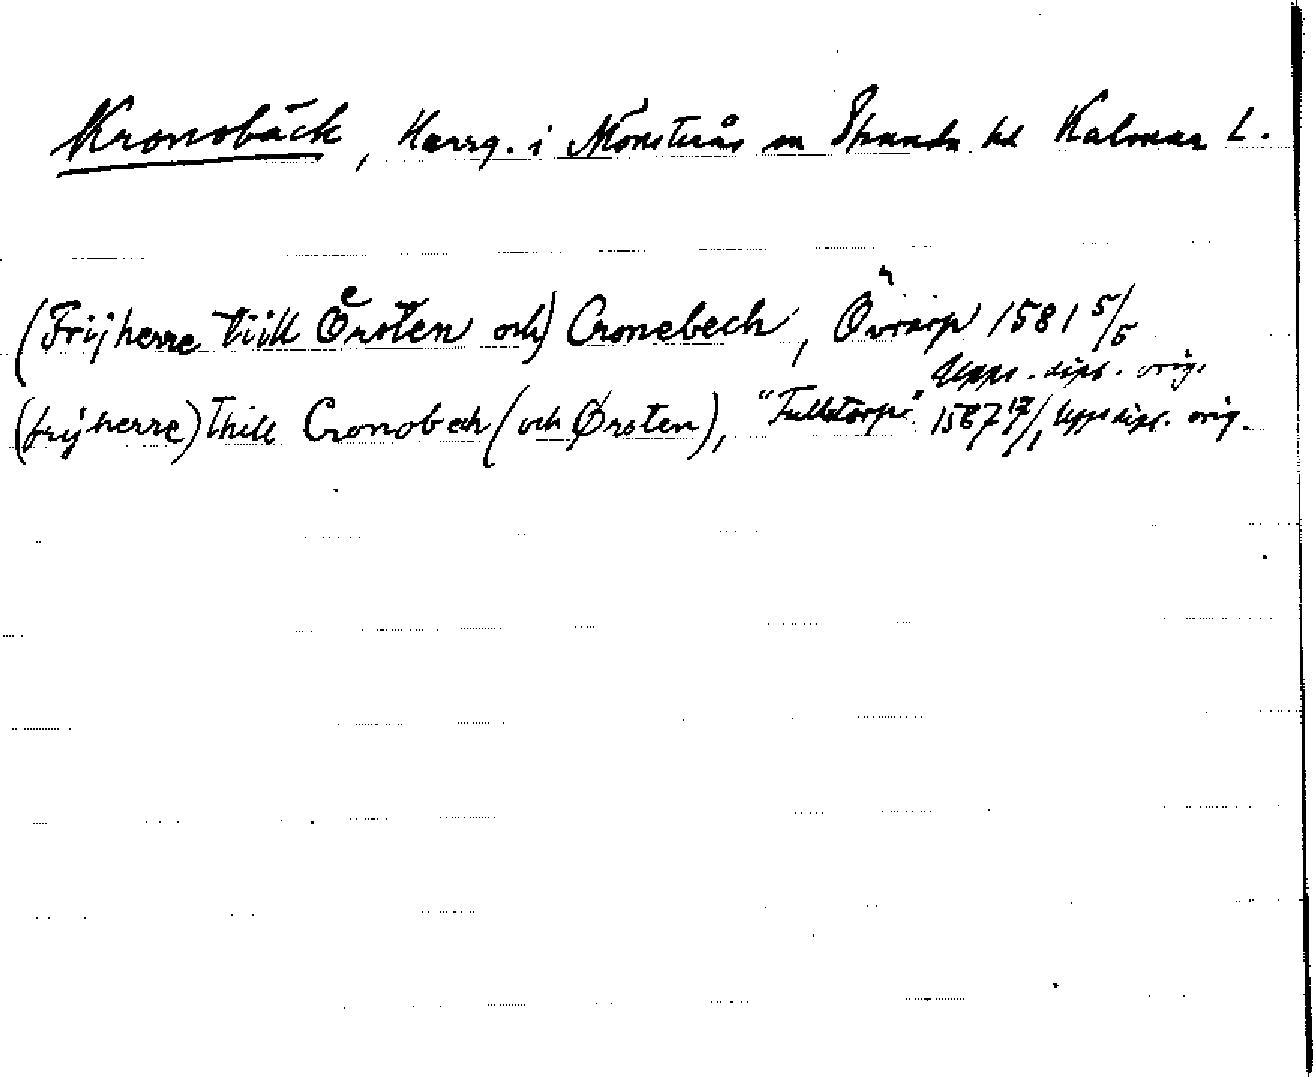 Kronobäck, Herrg. i Mönsterås sn Stranda hd Kalmar L.
(Frijherre tiill Örsten och) Cronebech, Övrarp 1581 5/5
Upps. dipl. orig.
(frijherre) thill Cronobech (och Ørsten), "Tullstorp" 1587 17/1 Upps dipl. orig.